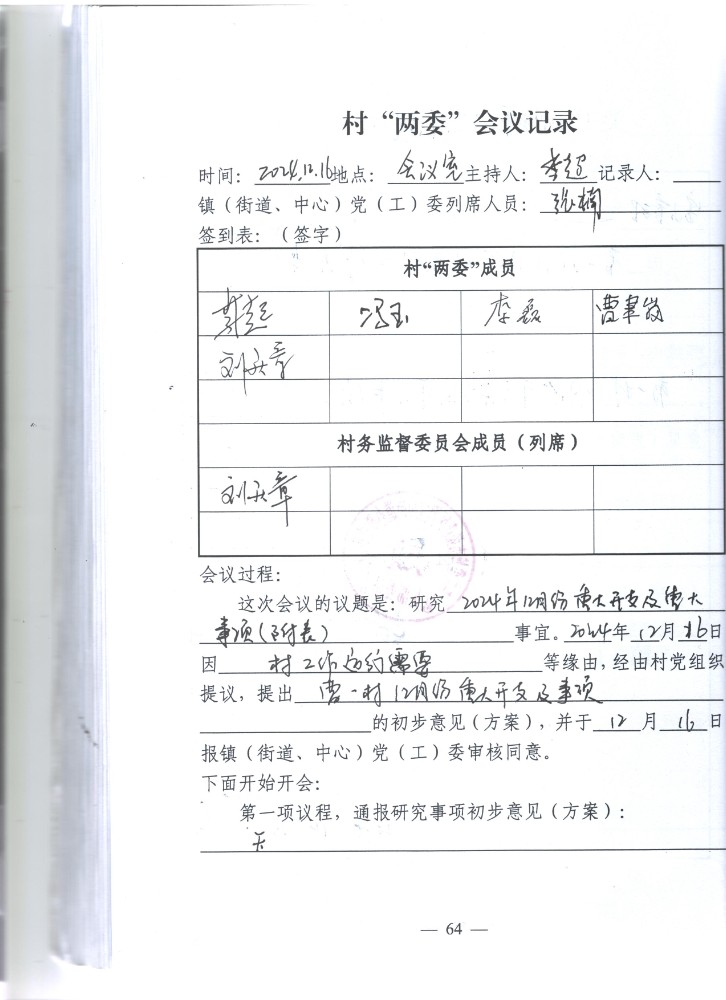 村“两委”会议记录
时间：2024.12.16地点：会议室主持人：李超 记录人：
镇（街道、中心）党（工）委列席人员：张楠
签到表：（签字）
村“两委”成员
李超 冯玉 李磊 曹
刘 章
村务监督委员会成员（列席）
刘 章
会议过程：
这次会议的议题是：研究 2024年12月份重大开支及重大
事项（后附表） 事宜。2024年12月16日
因 村工作 需要 等缘由，经由村党组织
提议，提出 曹一村12月份重大开支及事项
的初步意见（方案），并于12月16日
报镇（街道、中心）党（工）委审核同意。
下面开始开会：
第一项议程，通报研究事项初步意见（方案）：
无
— 64 —